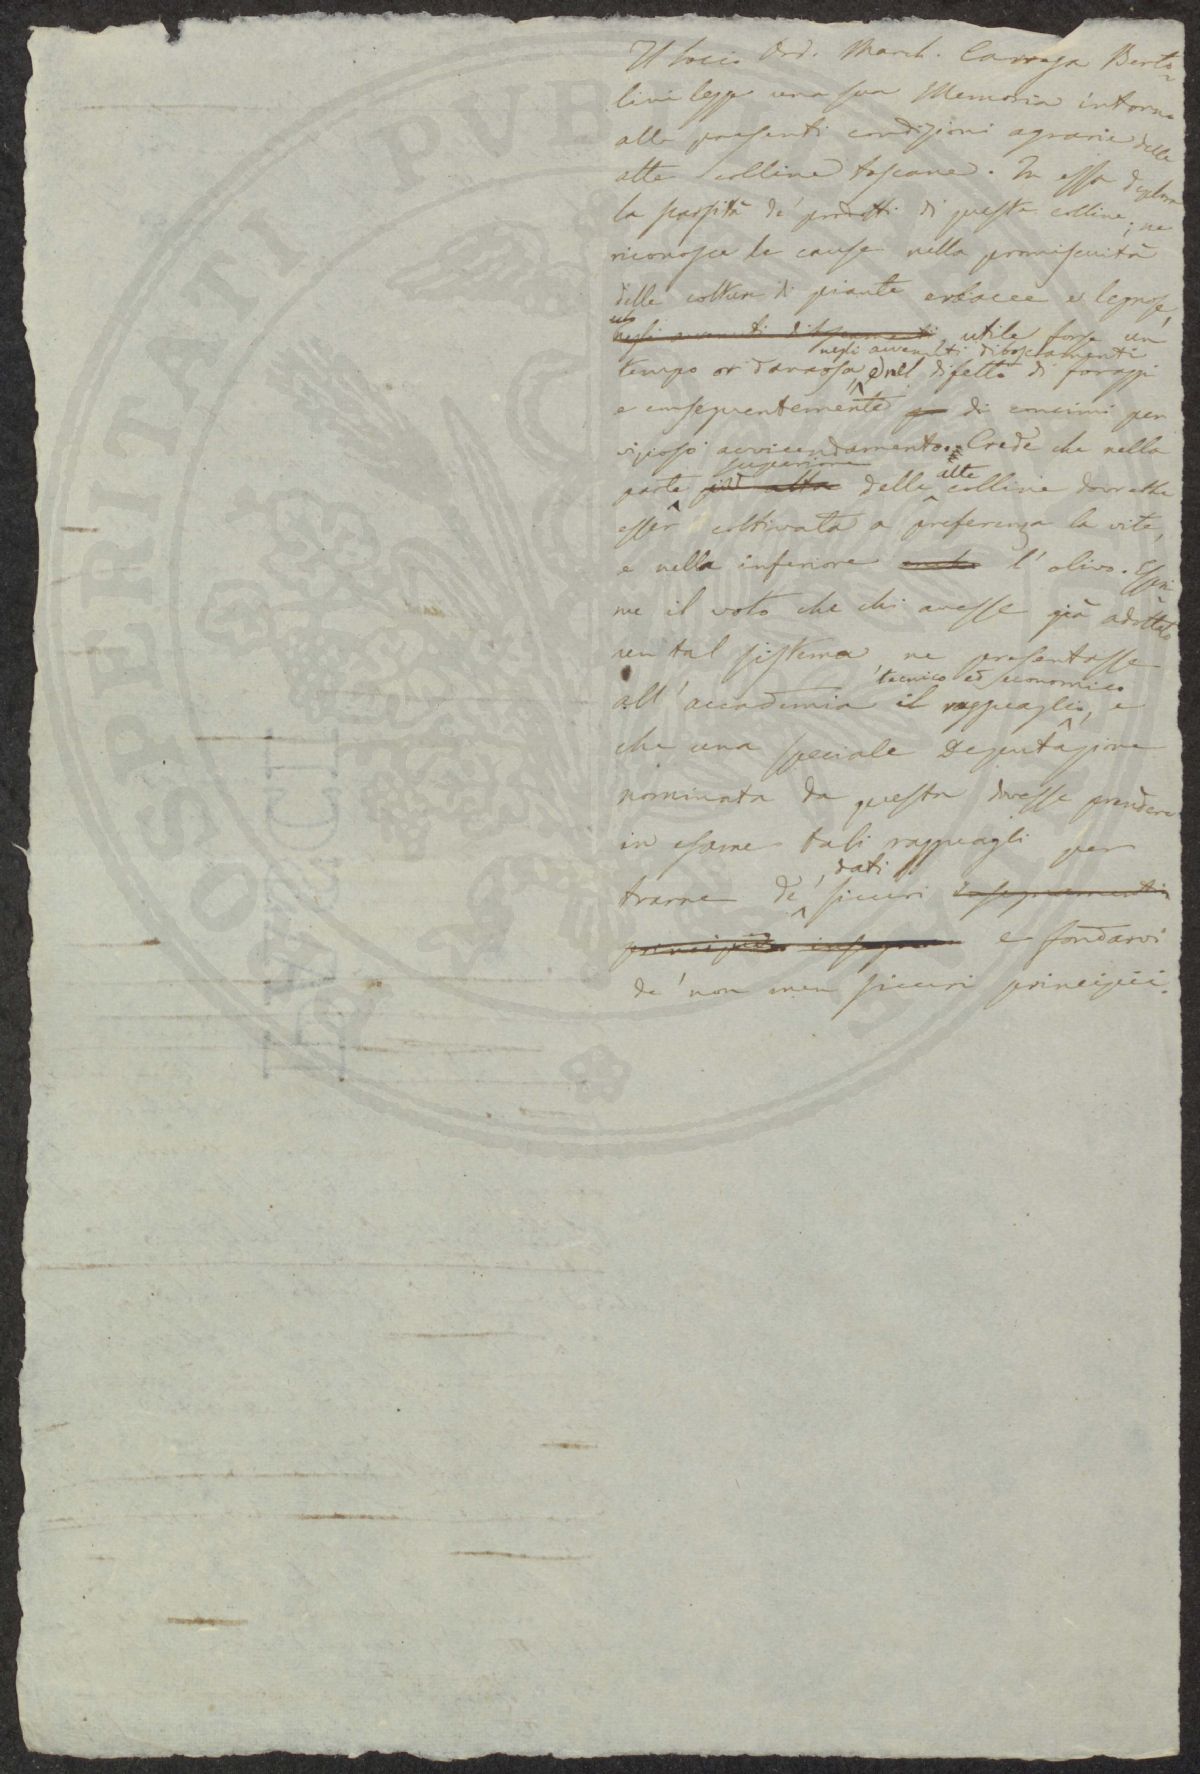 Il Socio Ord. March. Carrega Berto-
lini legge una sua Memoria intorno
alle presenti condizioni agrarie delle
alte colline toscane. In essa deplora
la scarsità de' prodotti di queste colline; ne
riconosce le cause nella promiscuità
delle colture di piante erbacee e legnose,
negli avvenuti disboscamenti, utile forse un
negli avvenuti disboscamenti
tempo or dannosa, e nel difetto di foraggi
e conseguentemente di concimi per
avvicendamento. Crede che nella
superiore
parte più alta delle alte colline dovrebbe
esser coltivata a preferenza la vite,
e nella inferiore anche l'olivo. Espri-
me il voto che chi avesse già adottato
un tal sistema ne presentasse
tecnico ed economico
all'accademia il ragguaglio, e
che una speciale Deputazione
nominata da questa dovesse prendere
in esame tali ragguagli per
dati
trarne de' sicuri insegnamenti
principii e fondarvi
de' non men sicuri principii.
PROSPERITATI PVBLICAE AVGENDAE
LVACCI